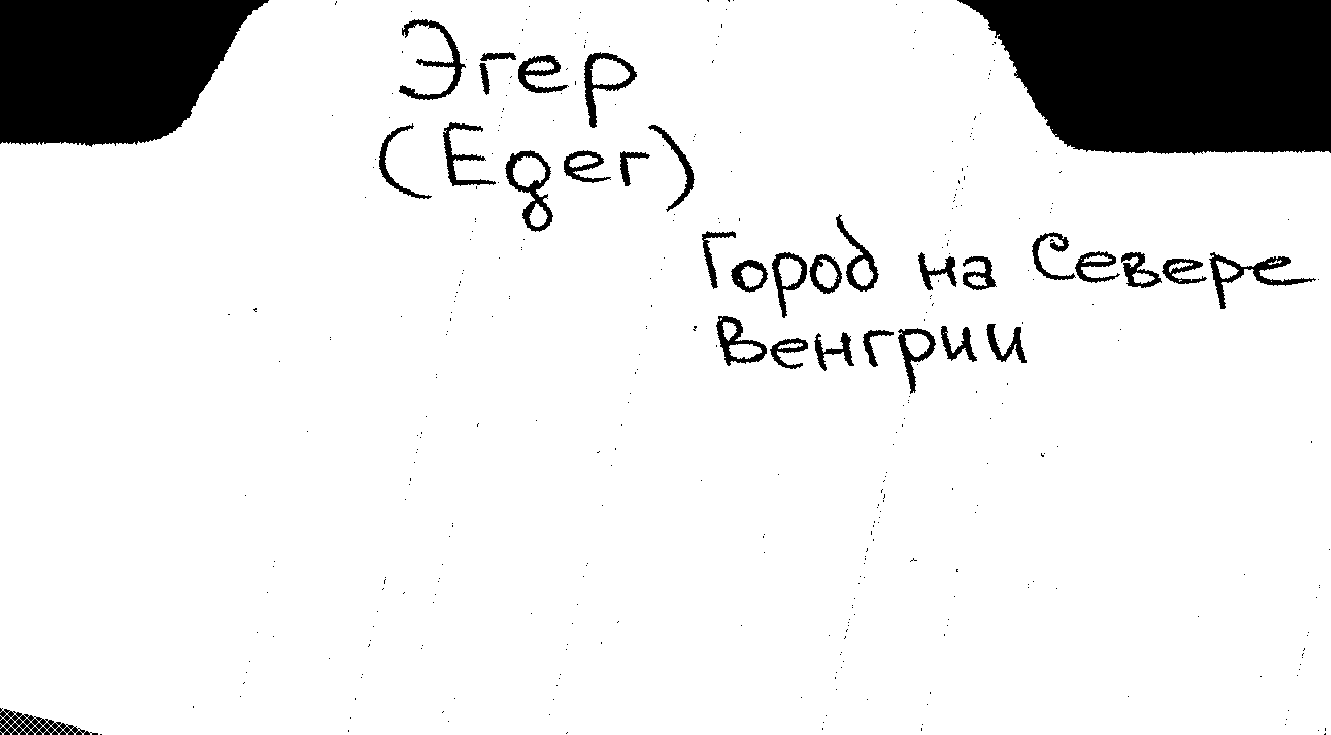 Эгер
(Eger)
Город на Севере
Венгрии